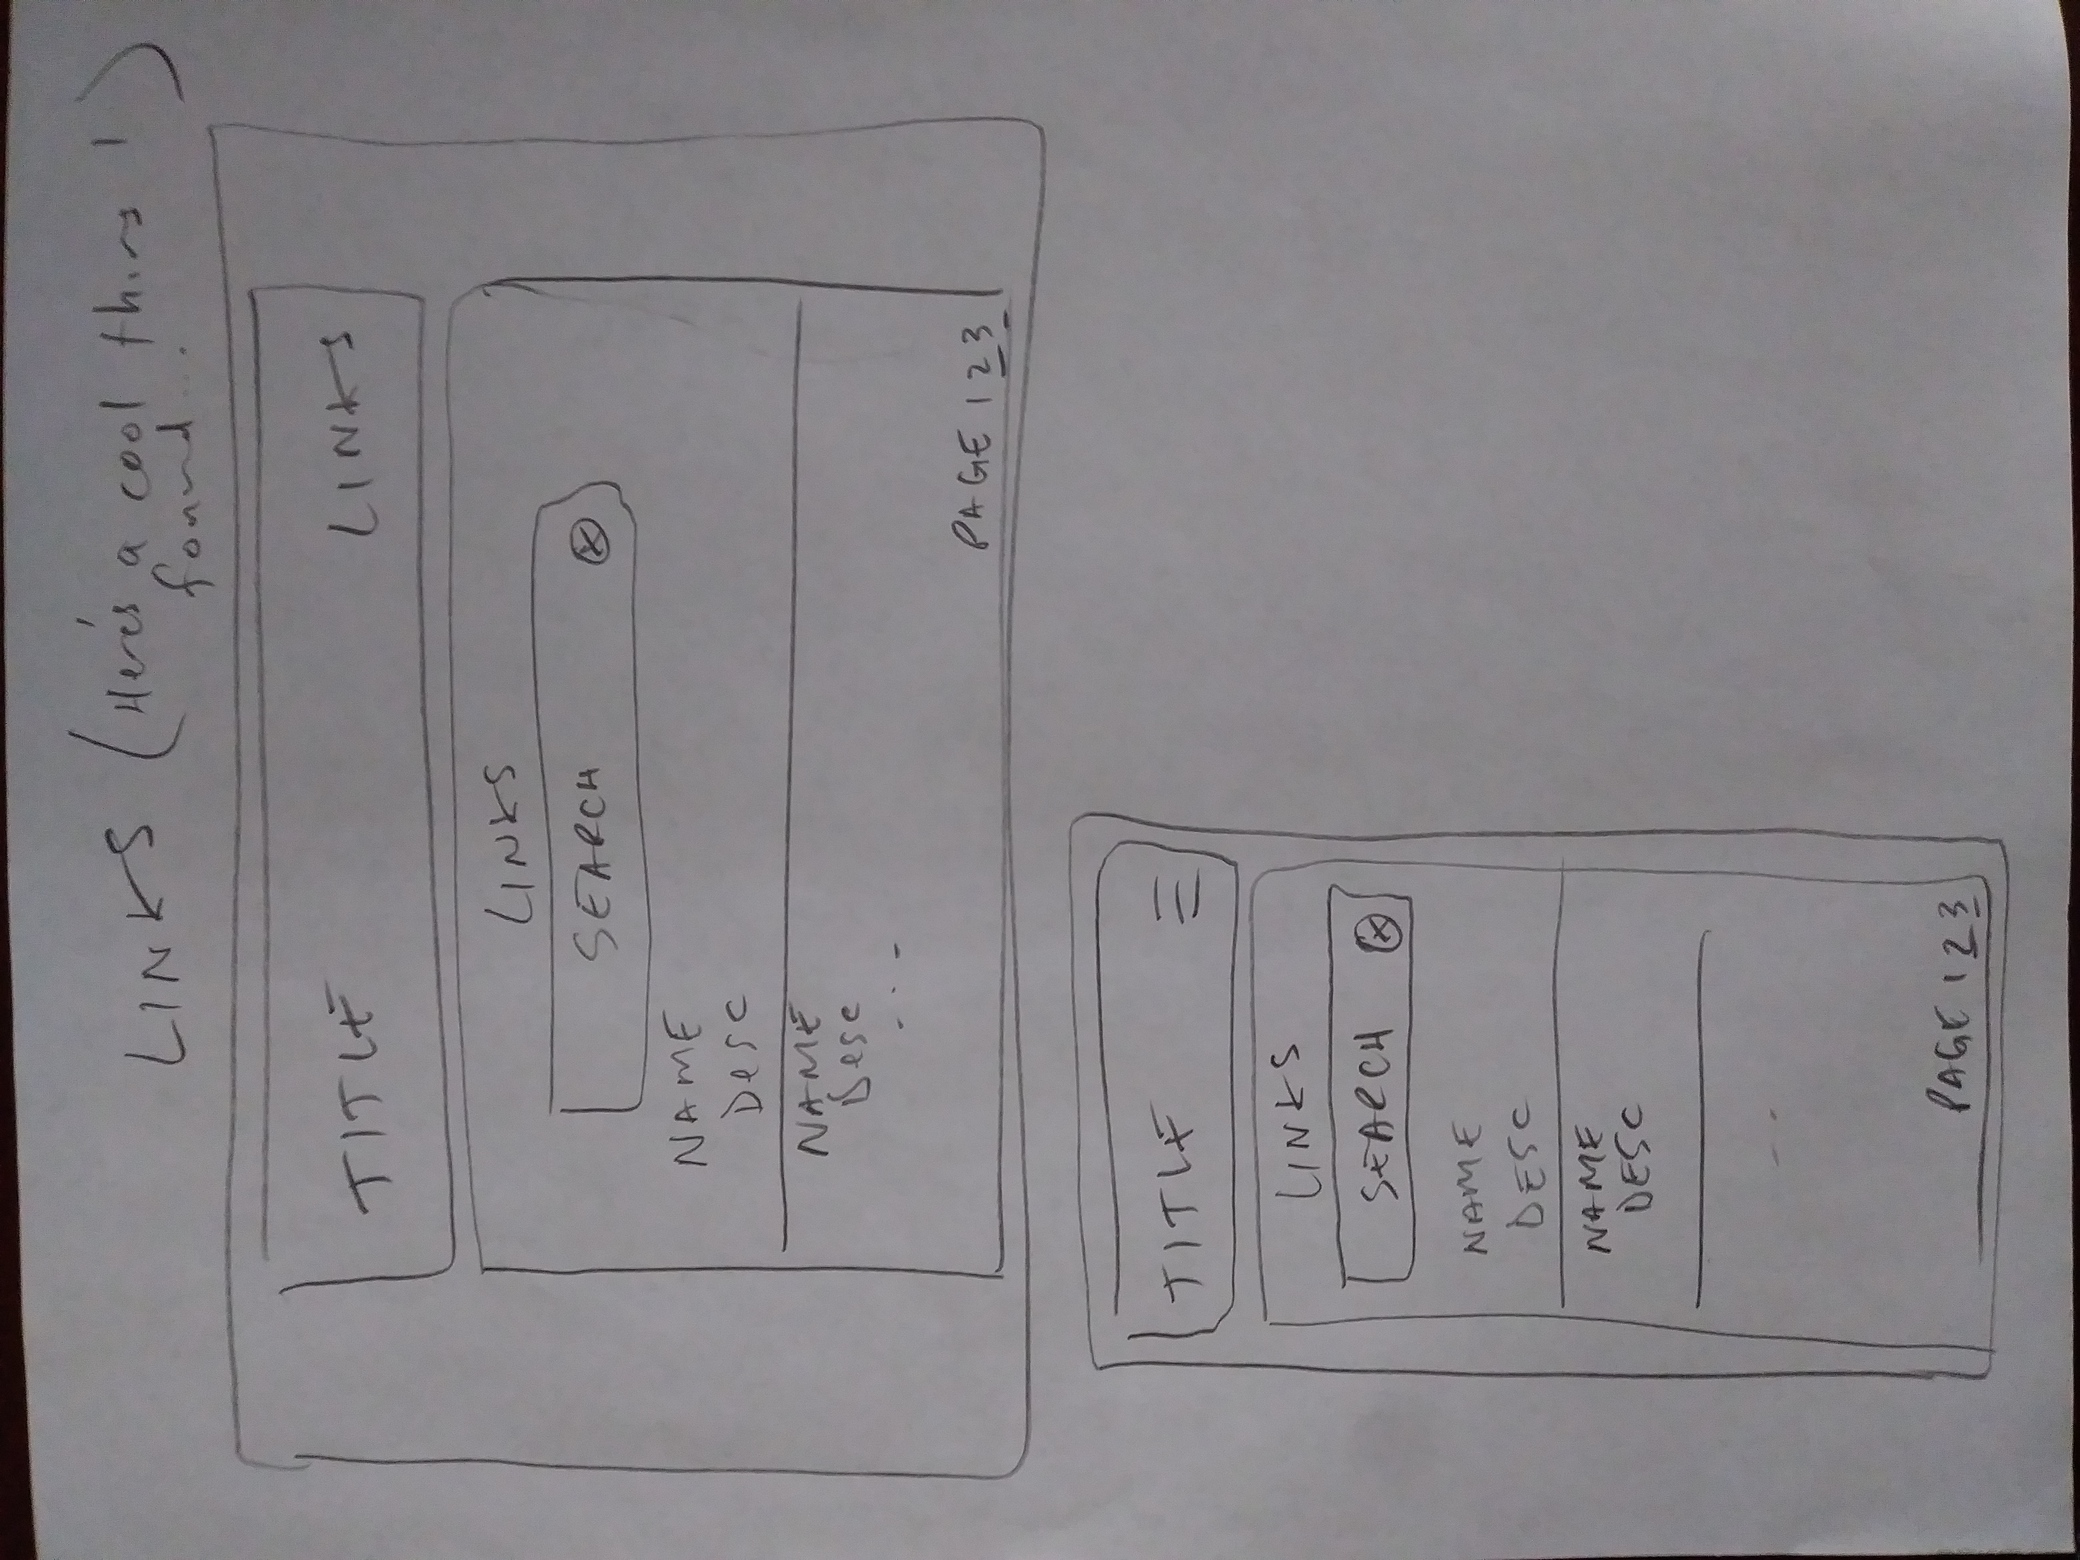 LINKS (Here's a cool thing I
found...)
TITLE LINKS
LINKS
SEARCH
NAME
Desc
NAME
Desc
...
PAGE 1 2 3
TITLE
LINKS
SEARCH
NAME
DESC
NAME
DESC
..
PAGE 1 2 3